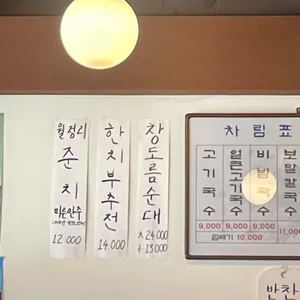 월정리
준치
매운안주
12000
한치부추전
14.000
창도름순대
大 24.000
小 13.000
차림표
고기국수
9,000
얼큰고기국수
9,000
비빔국수
9,000
보말칼국수
11,000
곱빼기 10,000
반찬